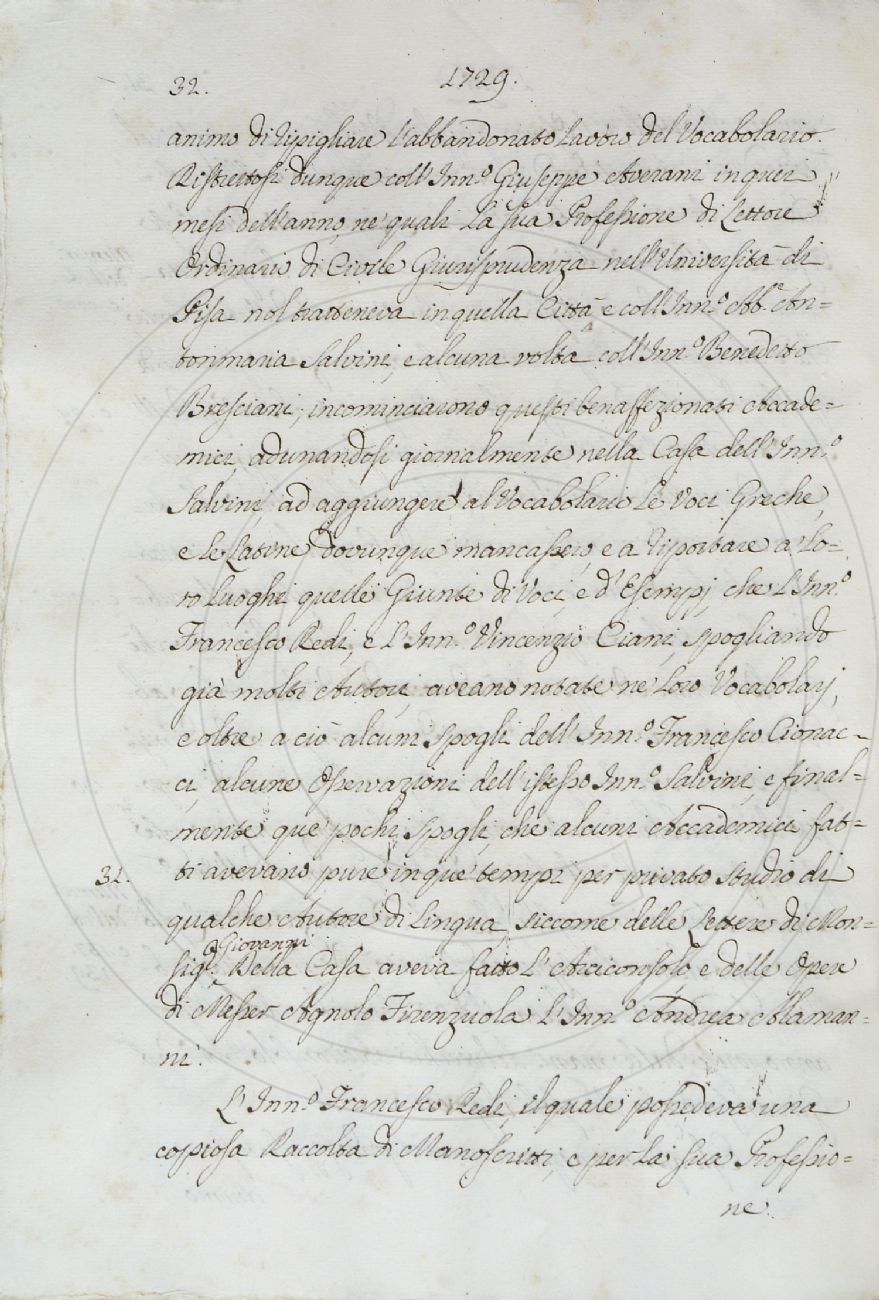 32.
1729.
animo di ripigliare l'abbandonato lavoro del Vocabolario.
Ristrettosi dunque coll'Inn.º Giuseppe Averani in quei
mesi dell'anno, ne' quali la sua Professione di Lettore
Ordinario di Civile Giurisprudenza nell'Università di
Pisa nol tratteneva in quella Città e coll'Inn.º Ab.e An=
tonmaria Salvini, e alcuna volta coll'Inn.º Benedetto
Bresciani, incominciarono questi benaffezionati Accade=
mici, adunandosi giornalmente nella Casa dell'Inn.º
Salvini, ad aggiungere al Vocabolario le Voci Greche,
e le Latine dovunque mancassero, e a riportare a' lo=
ro luoghi quelle Giunte di Voci, e d'Esempj, che l'Inn.º
Francesco Redi, e l'Inn.º Vincenzio Ciani, spogliando
già molti Autori, aveano notate ne' loro Vocabolarj,
e oltre a ciò alcuni spogli dell'Inn.º Francesco Cionac=
ci, alcune Osservazioni dell'istesso Inn.º Salvini, e final=
mente que' pochi spogli che alcuni Accademici fat=
31.
ti avevano pure in que' tempi per privato studio di
qualche Autore di Lingua, siccome delle Lettere di Mon=
Giovanni
sig.r Della Casa aveva fatto l'Accicorosolo, e delle Opere
di Messer Agnolo Firenzuola l'Inn.º Andrea Alaman=
ni.
L'Inn.º Francesco Redi, il quale possedeva una
copiosa Raccolta di Manoscritti, e per la sua Professio=
ne